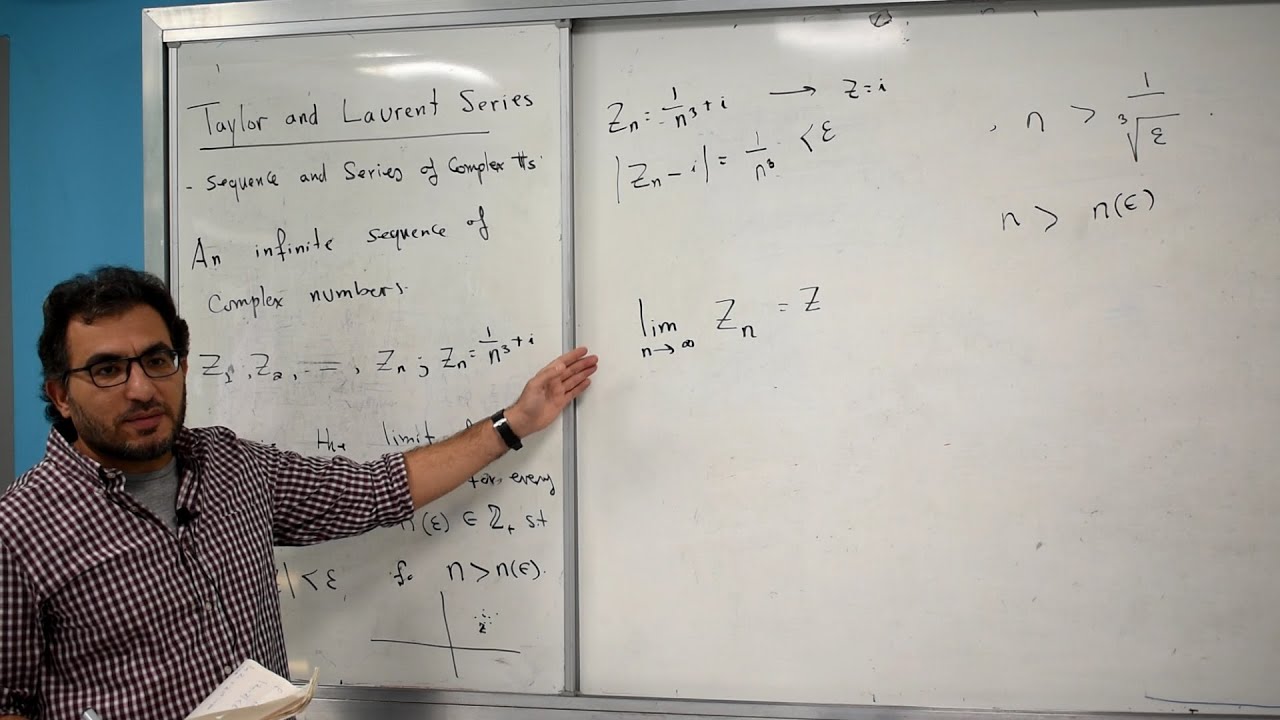 Taylor and Laurent Series
- Sequence and Series of Complex #s.
An infinite sequence of
Complex numbers.
Z₁, Z₂, ..., Zₙ ; Zₙ = 1/n³ + i
the limit
for every
n(ε) ∈ ℤ₊ s.t
| < ε for n > n(ε).
z
Zₙ = 1/n³ + i → z = i
|Zₙ - i| = 1/n³ < ε
lim n→∞ Zₙ = Z
, n > 1/∛ε .
n > n(ε)